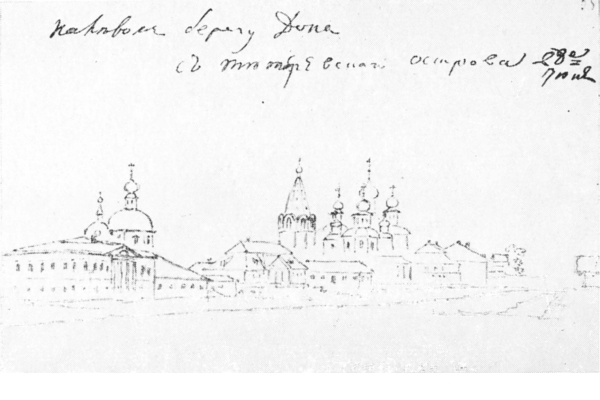 на левом берегу Дона
съ острова 28е
Июня